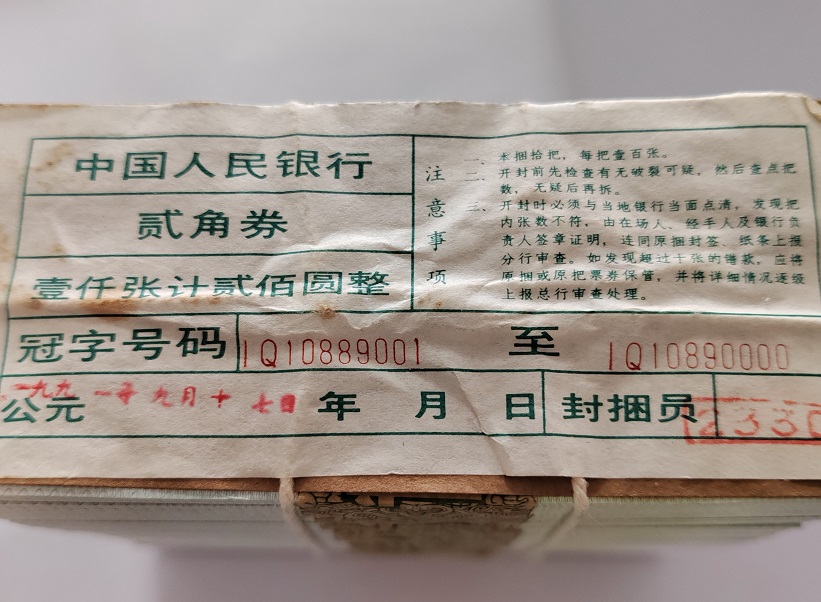 中国人民银行
贰角券
壹仟张计贰佰圆整
注意事项
一、本捆拾把，每把壹百张。
二、开封前先检查有无破裂可疑，然后查点把
数，无疑后再拆。
三、开封时必须与当地银行当面点清，发现把
内张数不符，由在场人、经手人及银行负
责人签章证明，连同原捆封签、纸条上报
分行审查。如发现超过十张的错款，应将
原捆或原把票券保管，并将详细情况逐级
上报总行审查处理。
冠字号码 IQ10889001 至 IQ10890000
一九九一年九月十七日
公元 年 月 日 封捆员 2330